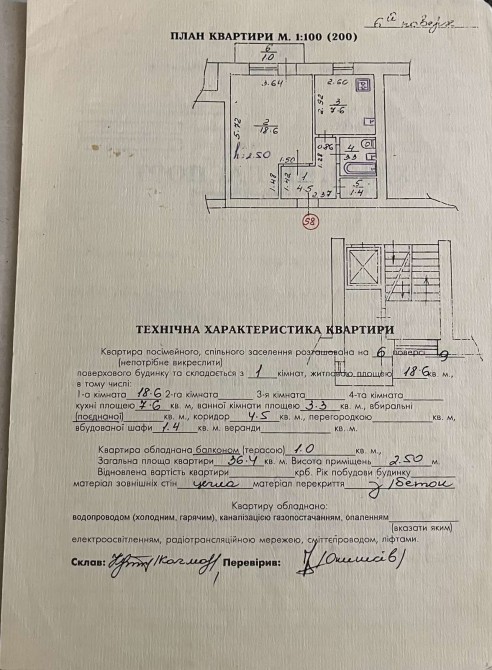 6й поверх
ПЛАН КВАРТИРИ М. 1:100 (200)
6
1.0
3.64
2.60
2.92
3
7.6
5.72
2
18.6
0.86
4
3.3
h=2.50
1.50
1.28
1.48
1.42
1
4.5
5
1.4
2.37
58
ТЕХНІЧНА ХАРАКТЕРИСТИКА КВАРТИРИ
Квартира посімейного, спільного заселення розташована на 6 поверсі 9
(непотрібне викреслити)
поверхового будинку та складається з 1 кімнат, житловою площею 18.6 кв. м,
в тому числі:
1-а кімната 18.6 2-га кімната 3-я кімната 4-та кімната
кухні площею 7.6 кв. м, ванної кімнати площею 3.3 кв. м., вбиральні
(поєднаної) кв. м., коридор 4.5 кв. м., перегородкою кв. м,
вбудованої шафи 1.4 кв. м. веранди кв. м.
Квартира обладнана балконом (терасою) 1.0 кв. м.,
Загальна площа квартири 36.4 кв. м. Висота приміщень 2.50 м.
Відновлена вартість квартири крб. Рік побудови будинку
матеріал зовнішніх стін цегла матеріал перекриття з/бетон
Квартиру обладнано:
водопроводом (холодним, гарячим), каналізацією газопостачанням, опаленням
(вказати яким)
електроосвітленням, радіотрансляційною мережею, сміттєпроводом, ліфтами.
Склав: Перевірив: